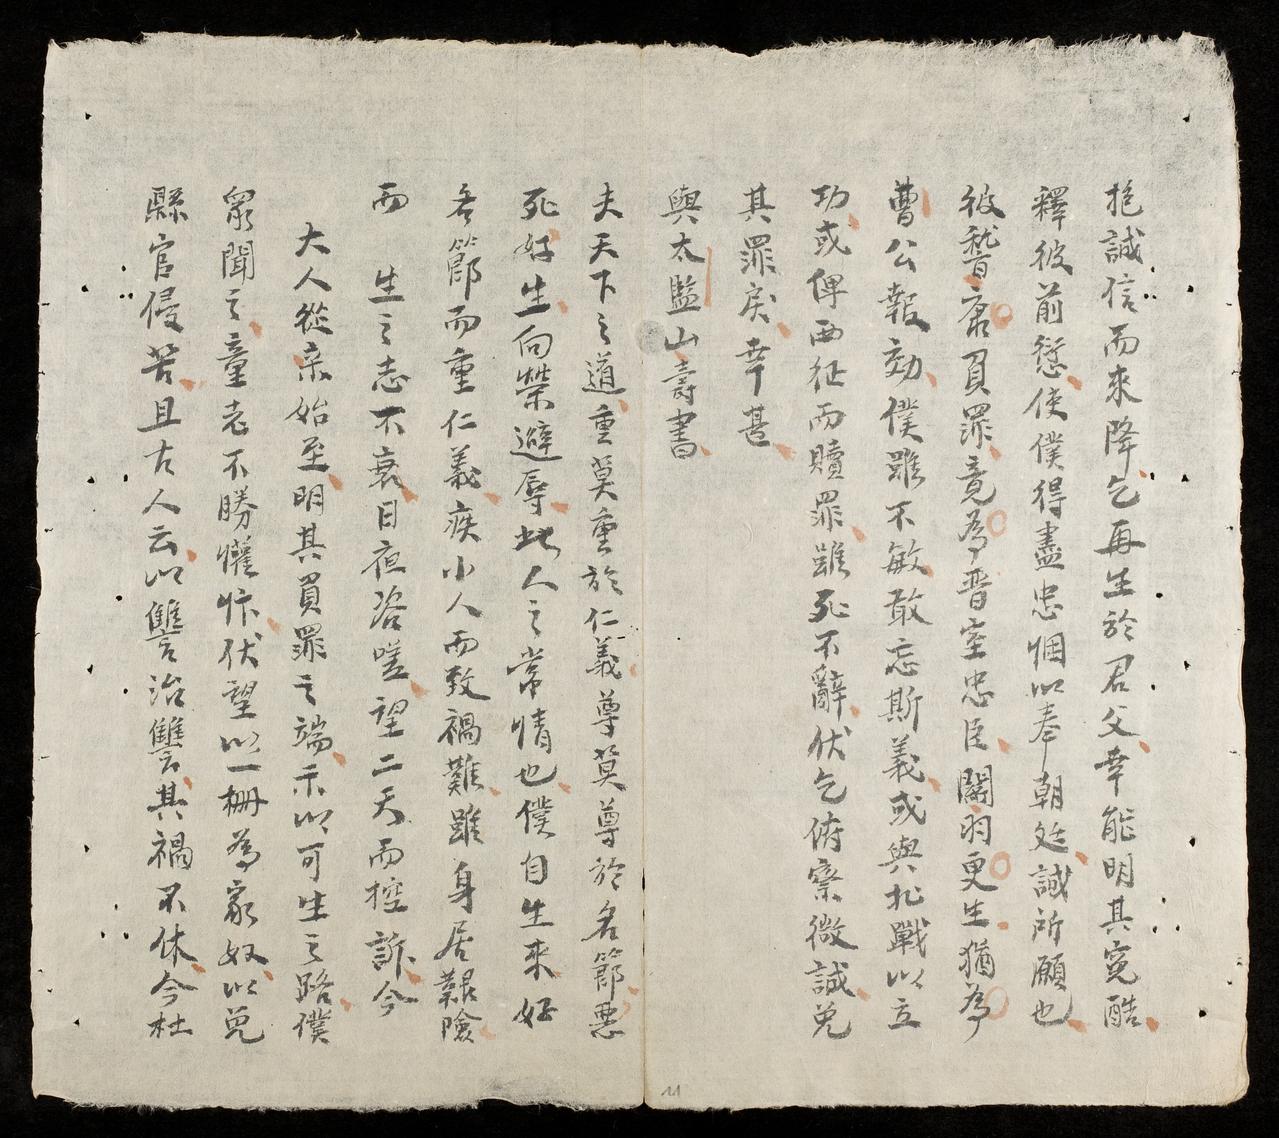 抱誠信而來降乞再生於君父幸能明其冤酷
釋彼前愆使僕得盡忠悃以奉朝廷誠所願也
彼嵇康負罪竟為晋室忠臣關羽更生猶為
曹公報効僕雖不敏敢忘斯義或與北戰以立
功或俾西征而贖罪雖死不辭伏乞俯察微誠免
其罪戾幸甚
與太監山壽書
夫天下之道重莫重於仁義尊莫尊於名節悪
死好生向榮避辱此人之常情也僕自生來好
名節而重仁義疾小人而致禍難雖身居艱險
而生之志不衰日夜咨嗟望二天而控訴今
大人從京始至明其負罪之端示以可生之路僕
衆聞之童老不勝懽忭伏望以一柵為家奴以免
縣官侵苦且古人云以讐治讐其禍不休今杜
11